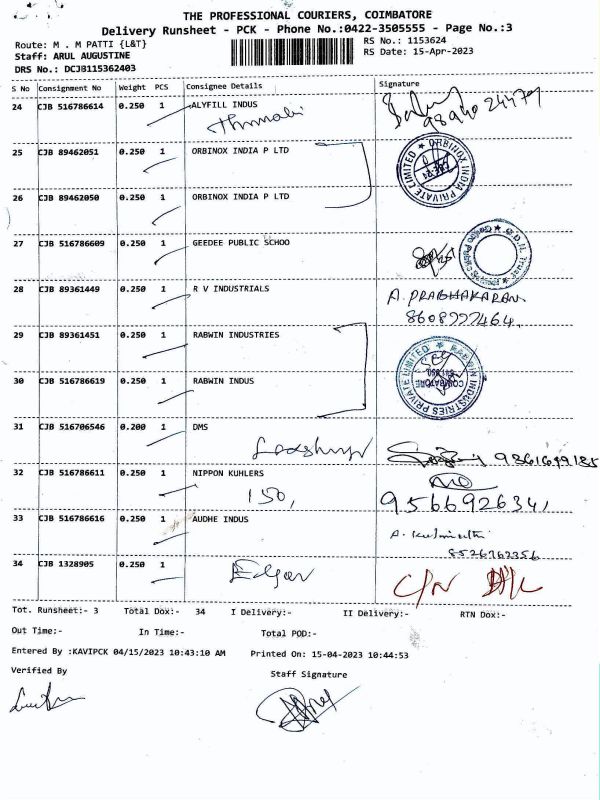 THE PROFESSIONAL COURIERS, COIMBATORE
Delivery Runsheet - PCK - Phone No.:0422-3505555 - Page No.:3
Route: M . M PATTI {L&T}
RS No.: 1153624
Staff: ARUL AUGUSTINE
RS Date: 15-Apr-2023
DRS No.: DCJB115362403
S No Consignment No Weight PCS Consignee Details Signature
24 CJB 516786614 0.250 1 ALYFILL INDUS
25 CJB 89462051 0.250 1 ORBINOX INDIA P LTD
ORBINOX INDIA PRIVATE LIMITED
26 CJB 89462050 0.250 1 ORBINOX INDIA P LTD
27 CJB 516786609 0.250 1 GEEDEE PUBLIC SCHOO
28 CJB 89361449 0.250 1 R V INDUSTRIALS A. PRABHAKARAN
29 CJB 89361451 0.250 1 RABWIN INDUSTRIES
RABWIN INDUSTRIES PRIVATE LIMITED
COIMBATORE
30 CJB 516786619 0.250 1 RABWIN INDUS
31 CJB 516706546 0.200 1 DMS
32 CJB 516786611 0.250 1 NIPPON KUHLERS
150,
9566926341
33 CJB 516786616 0.250 1 AUDHE INDUS
34 CJB 1328905 0.250 1 Edgar
Tot. Runsheet:- 3 Total Dox:- 34 I Delivery:- II Delivery:- RTN Dox:-
Out Time:- In Time:- Total POD:-
Entered By :KAVIPCK 04/15/2023 10:43:10 AM Printed On: 15-04-2023 10:44:53
Verified By Staff Signature